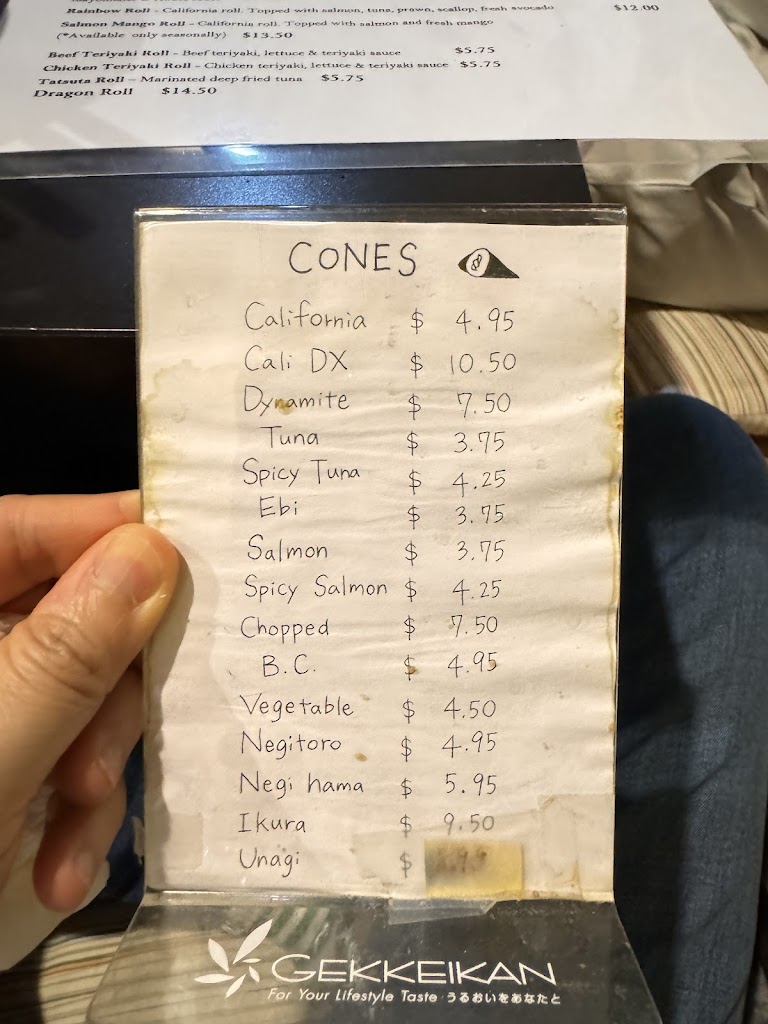 Rainbow Roll - California roll. Topped with salmon, tuna, prawn, scallop, fresh avocado $12.00
Salmon Mango Roll - California roll. Topped with salmon and fresh mango
(*Available only seasonally) $13.50
Beef Teriyaki Roll - Beef teriyaki, lettuce & teriyaki sauce $5.75
Chicken Teriyaki Roll - Chicken teriyaki, lettuce & teriyaki sauce $5.75
Tatsuta Roll – Marinated deep fried tuna $5.75
Dragon Roll $14.50
CONES
California $ 4.95
Cali DX $ 10.50
Dynamite $ 7.50
Tuna $ 3.75
Spicy Tuna $ 4.25
Ebi $ 3.75
Salmon $ 3.75
Spicy Salmon $ 4.25
Chopped $ 7.50
B.C. $ 4.95
Vegetable $ 4.50
Negitoro $ 4.95
Negi hama $ 5.95
Ikura $ 9.50
Unagi $
GEKKEIKAN
For Your Lifestyle Taste うるおいをあなたと